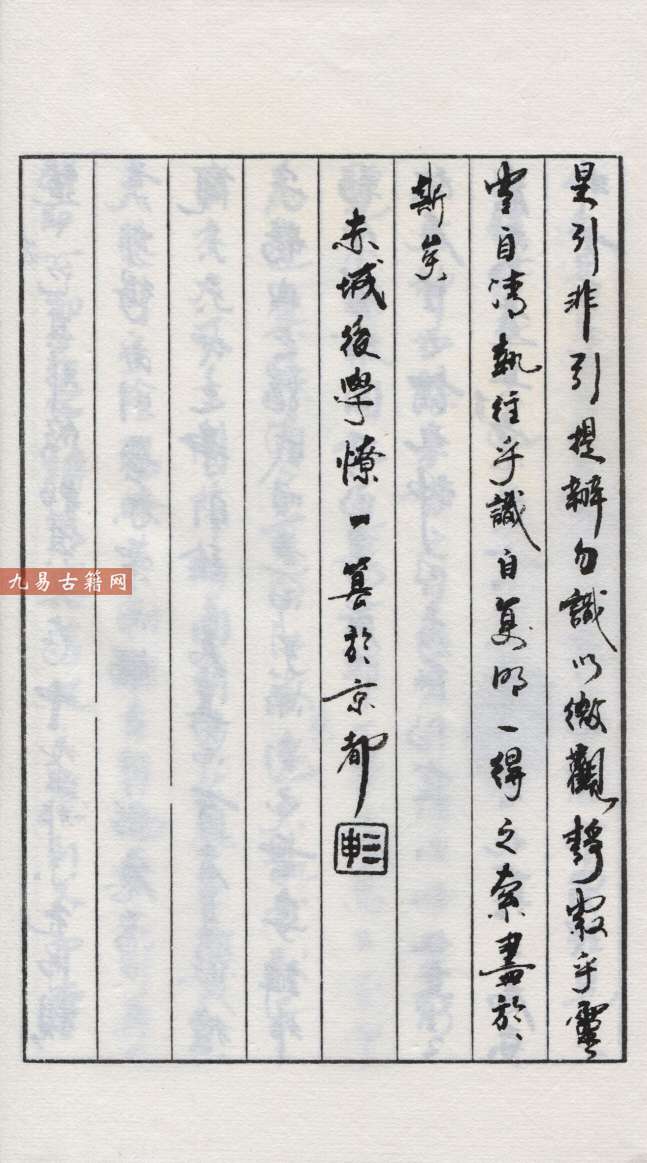 是引非引提辦勿識以微觀靜寂乎靈
靈自清執往乎識自復明一得之索盡於
斯矣
赤城後學憭一篹於京都
九易古籍网